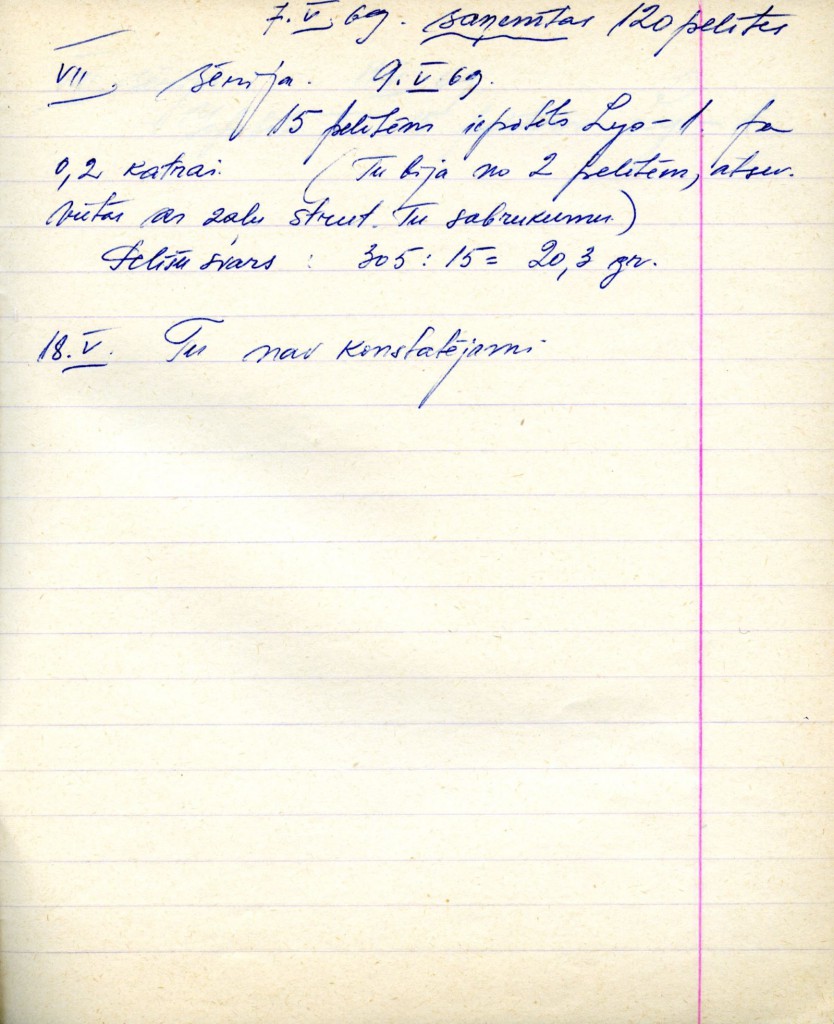 7.V.69. saņemtas 120 pelītes
VII. sērija. 9.V.69.
15 pelītēm iepotēts Lyo-1. pa
0,2 katrai. (Tu bija no 2 pelītēm, atsev.
vietās ar zaļu strut. Tu sabrukumu.)
Pelīšu svars : 305 : 15 = 20,3 gr.
18.V. Tu nav konstatējami